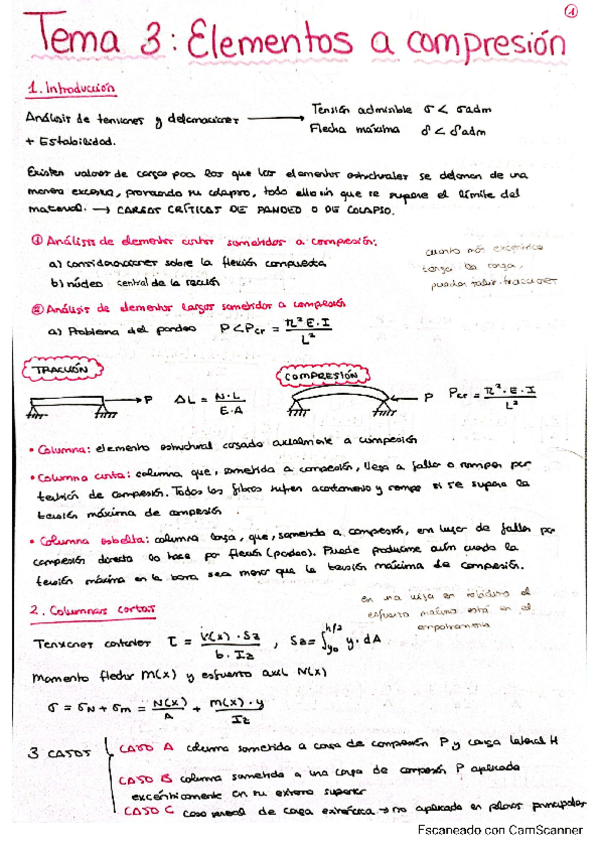 1
Tema 3: Elementos a compresión
1. Introducción
Análisis de tensiones y deformaciones → Tensión admisible σ < σadm
Flecha máxima δ < δadm
+ Estabilidad.
Existen valores de cargas para los que los elementos estructurales se deforman de una
manera excesiva, provocando su colapso, todo ello sin que se supere el límite del
material. → CARGAS CRÍTICAS DE PANDEO O DE COLAPSO.
① Análisis de elementos cortos sometidos a compresión:
a) consideraciones sobre la flexión compuesta
b) núcleo central de la sección
cuanto más excéntrica
tenga la carga,
pueden salir tracciones
② Análisis de elementos largos sometidos a compresión
a) Problema del pandeo P < Pcr = π²E·I / L²
TRACCIÓN
P ΔL = N·L / E·A
COMPRESIÓN
P Pcr = π²·E·I / L²
• Columna: elemento estructural cargado axialmente a compresión
• Columna corta: columna que, sometida a compresión, llega a fallar o romper por
tensión de compresión. Todas las fibras sufren acortamiento y rompe si se supera la
tensión máxima de compresión.
• Columna esbelta: columna larga, que, sometida a compresión, en lugar de fallar por
compresión directa lo hace por flexión (pandeo). Puede producirse aún cuando la
tensión máxima en la barra sea menor que la tensión máxima de compresión.
en una viga en voladizo el
esfuerzo máximo está en el
empotramiento
2. Columnas cortas
Tensiones cortantes τ = V(x)·Sz / b·Iz , Sz = ∫y₀^h/2 y·dA
Momento flector M(x) y esfuerzo axil N(x)
σ = σN + σm = N(x) / A + M(x)·y / Iz
3 CASOS
CASO A columna sometida a carga de compresión P y carga lateral H
CASO B columna sometida a una carga de compresión P aplicada
excéntricamente en su extremo superior
CASO C caso general de carga excéntrica → no aplicada en planos principales
Escaneado con CamScanner